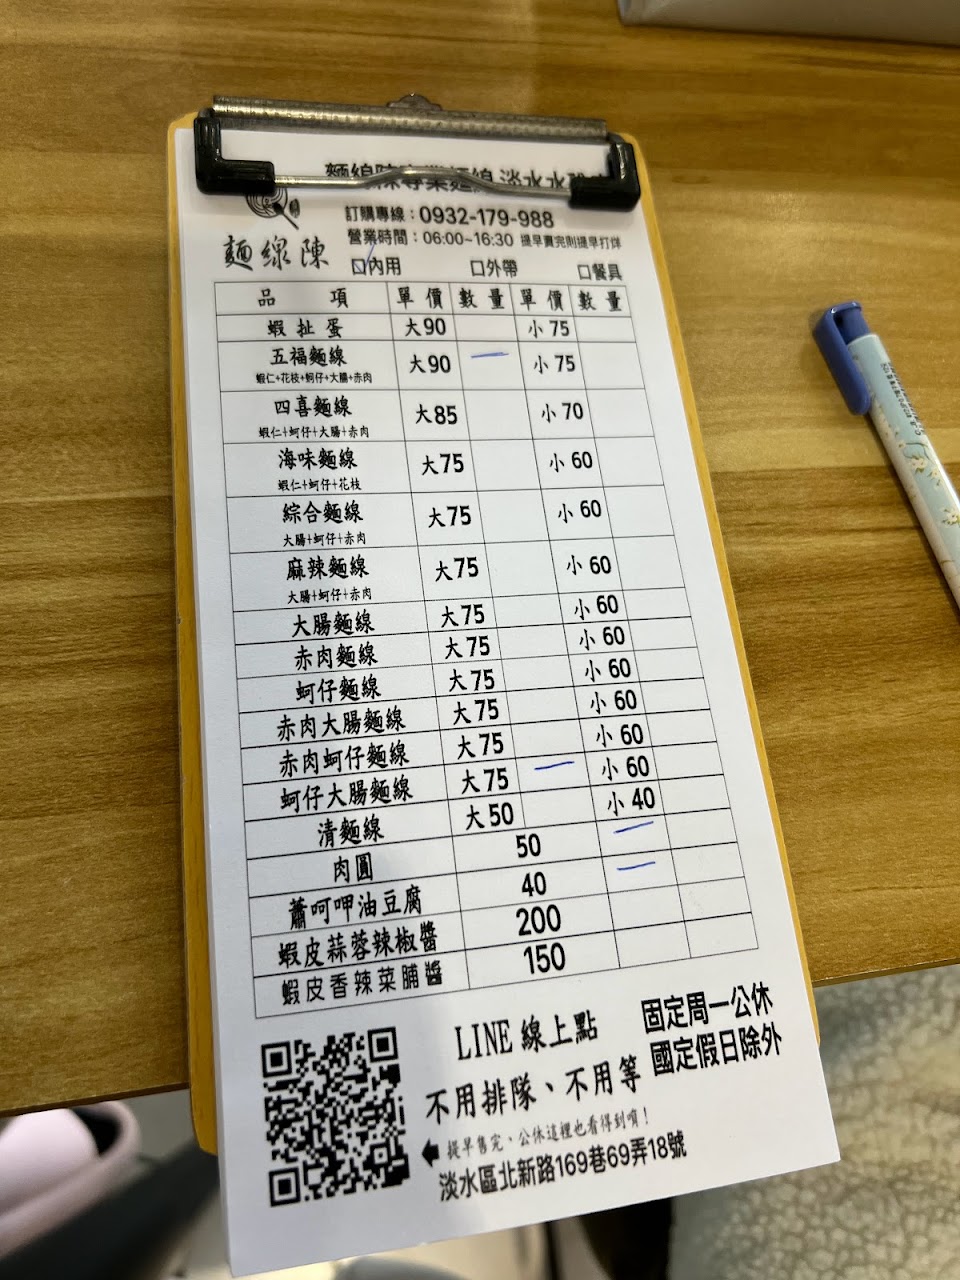 麵線陳專業麵線 淡水水
麵線陳
訂購專線：0932-179-988
營業時間：06:00~16:30 提早賣完則提早打烊
☑內用 □外帶 □餐具
品 項 單 價 數 量 單 價 數 量
蝦扯蛋 大90 小75
五福麵線 大90 一 小75
蝦仁+花枝+蚵仔+大腸+赤肉
四喜麵線 大85 小70
蝦仁+蚵仔+大腸+赤肉
海味麵線 大75 小60
蝦仁+蚵仔+花枝
綜合麵線 大75 小60
大腸+蚵仔+赤肉
麻辣麵線 大75 小60
大腸+蚵仔+赤肉
大腸麵線 大75 小60
赤肉麵線 大75 小60
蚵仔麵線 大75 小60
赤肉大腸麵線 大75 小60
赤肉蚵仔麵線 大75 小60
蚵仔大腸麵線 大75 一 小60
清麵線 大50 小40
肉圓 50 一
蕭呵呷油豆腐 40 一
蝦皮蒜蓉辣椒醬 200
蝦皮香辣菜脯醬 150
LINE 線上點
不用排隊、不用等
固定周一公休
國定假日除外
提早售完、公休這裡也看得到唷！
淡水區北新路169巷69弄18號